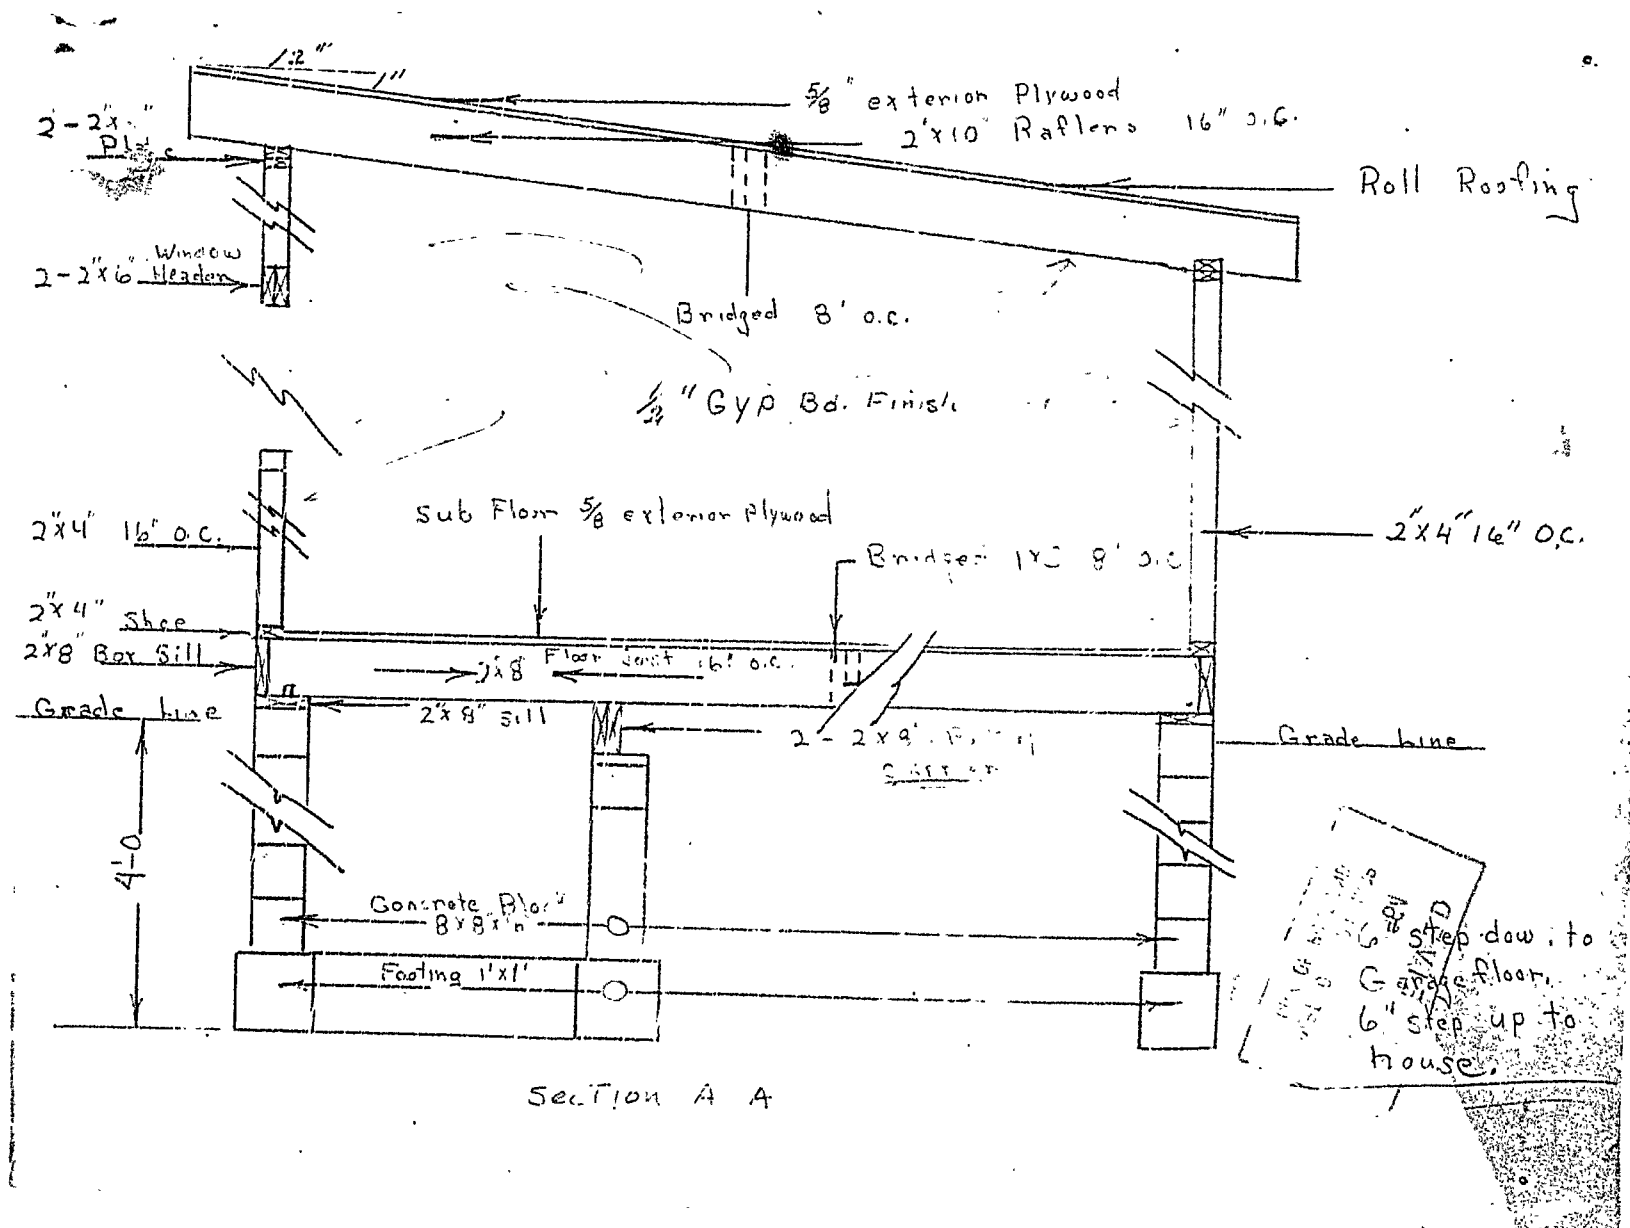 12"
1"
5/8" exterior Plywood
2"x10" Rafters 16" O.C.
2-2"x
Roll Roofing
Window
2-2"x6" Header
Bridged 8' O.C.
1/2" Gyp Bd. Finish
Sub Floor 5/8 exterior Plywood
2"x4" 16" O.C.
2"x4" 16" O.C.
Bridged 8' O.C
2"x4" Shoe
2"x8" Box Sill
2x8" Floor Joist 16" O.C.
Grade Line
2"x8" Sill
2-2x8"
Grade Line
4'-0
Concrete Block
8x8x
Footing 1'x1'
6" step down to
Garage floor.
6" step up to
house.
Section A A